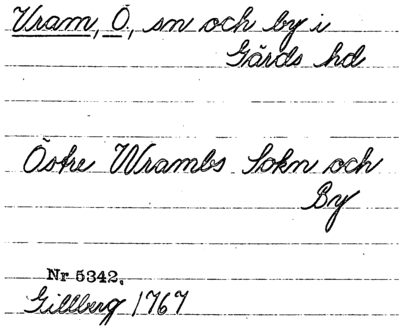 Vram, Ö, sn och by i
Gärds hd
Östre Wrambs Sokn och
By
Nr 5342.
Gillberg 1767